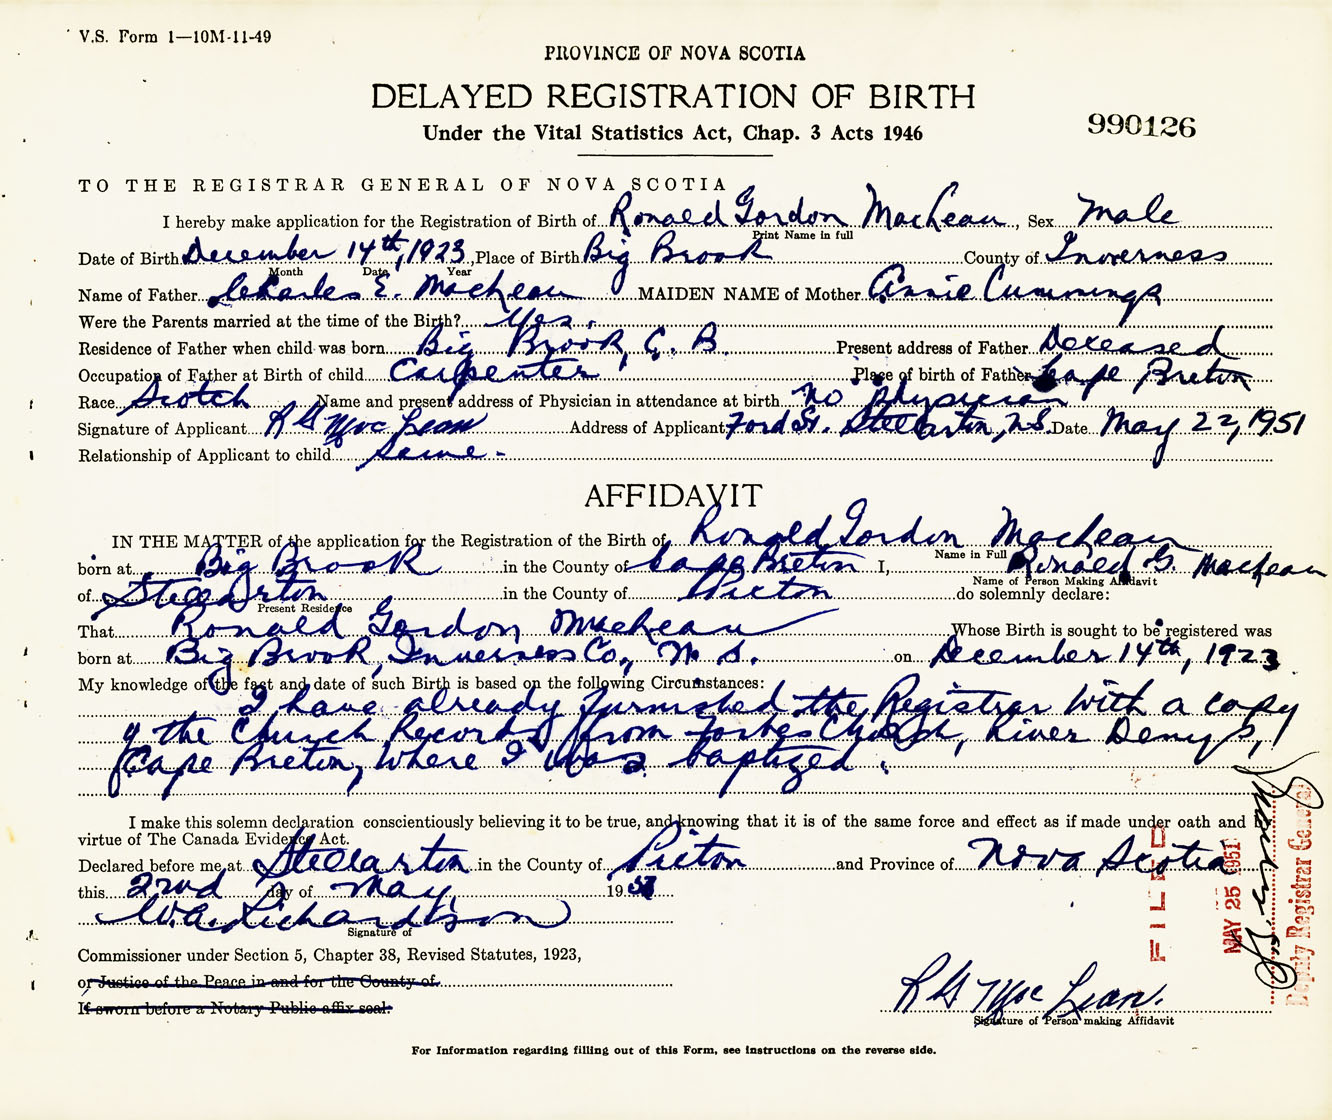 V.S. Form 1—10M-11-49
PROVINCE OF NOVA SCOTIA
DELAYED REGISTRATION OF BIRTH
990126
Under the Vital Statistics Act, Chap. 3 Acts 1946
TO THE REGISTRAR GENERAL OF NOVA SCOTIA
I hereby make application for the Registration of Birth of Ronald Gordon MacLean, Sex Male
Print Name in full
Date of Birth December 14th, 1923, Place of Birth Big Brook County of Inverness
Month Date Year
Name of Father Charles E. MacLean MAIDEN NAME of Mother Annie Cummings
Were the Parents married at the time of the Birth? Yes.
Residence of Father when child was born Big Brook, C. B. Present address of Father Deceased
Occupation of Father at Birth of child Carpenter Place of birth of Father Cape Breton
Race Scotch Name and present address of Physician in attendance at birth No Physician
Signature of Applicant R G MacLean Address of Applicant Ford St. Stellarton, N.S. Date May 22, 1951
Relationship of Applicant to child Same.
AFFIDAVIT
IN THE MATTER of the application for the Registration of the Birth of Ronald Gordon MacLean
Name in Full
born at Big Brook in the County of Cape Breton I, Ronald G. MacLean
Name of Person Making Affidavit
of Stellarton in the County of Pictou do solemnly declare:
Present Residence
That Ronald Gordon MacLean Whose Birth is sought to be registered was
born at Big Brook, Inverness Co., N. S. on December 14th, 1923
My knowledge of the fact and date of such Birth is based on the following Circumstances:
I have already furnished the Registrar with a copy
of the Church Records from Forbes Church, River Denys,
Cape Breton, where I was baptized.
I make this solemn declaration conscientiously believing it to be true, and knowing that it is of the same force and effect as if made under oath and by
virtue of The Canada Evidence Act.
Declared before me at Stellarton in the County of Pictou and Province of Nova Scotia
this 22nd day of May 1951
W.A. Richardson
Signature of
Commissioner under Section 5, Chapter 38, Revised Statutes, 1923,
or Justice of the Peace in and for the County of
If sworn before a Notary Public affix seal.
FILED
MAY 25 1951
Deputy Registrar General
R G MacLean.
Signature of Person making Affidavit
For Information regarding filling out of this Form, see instructions on the reverse side.